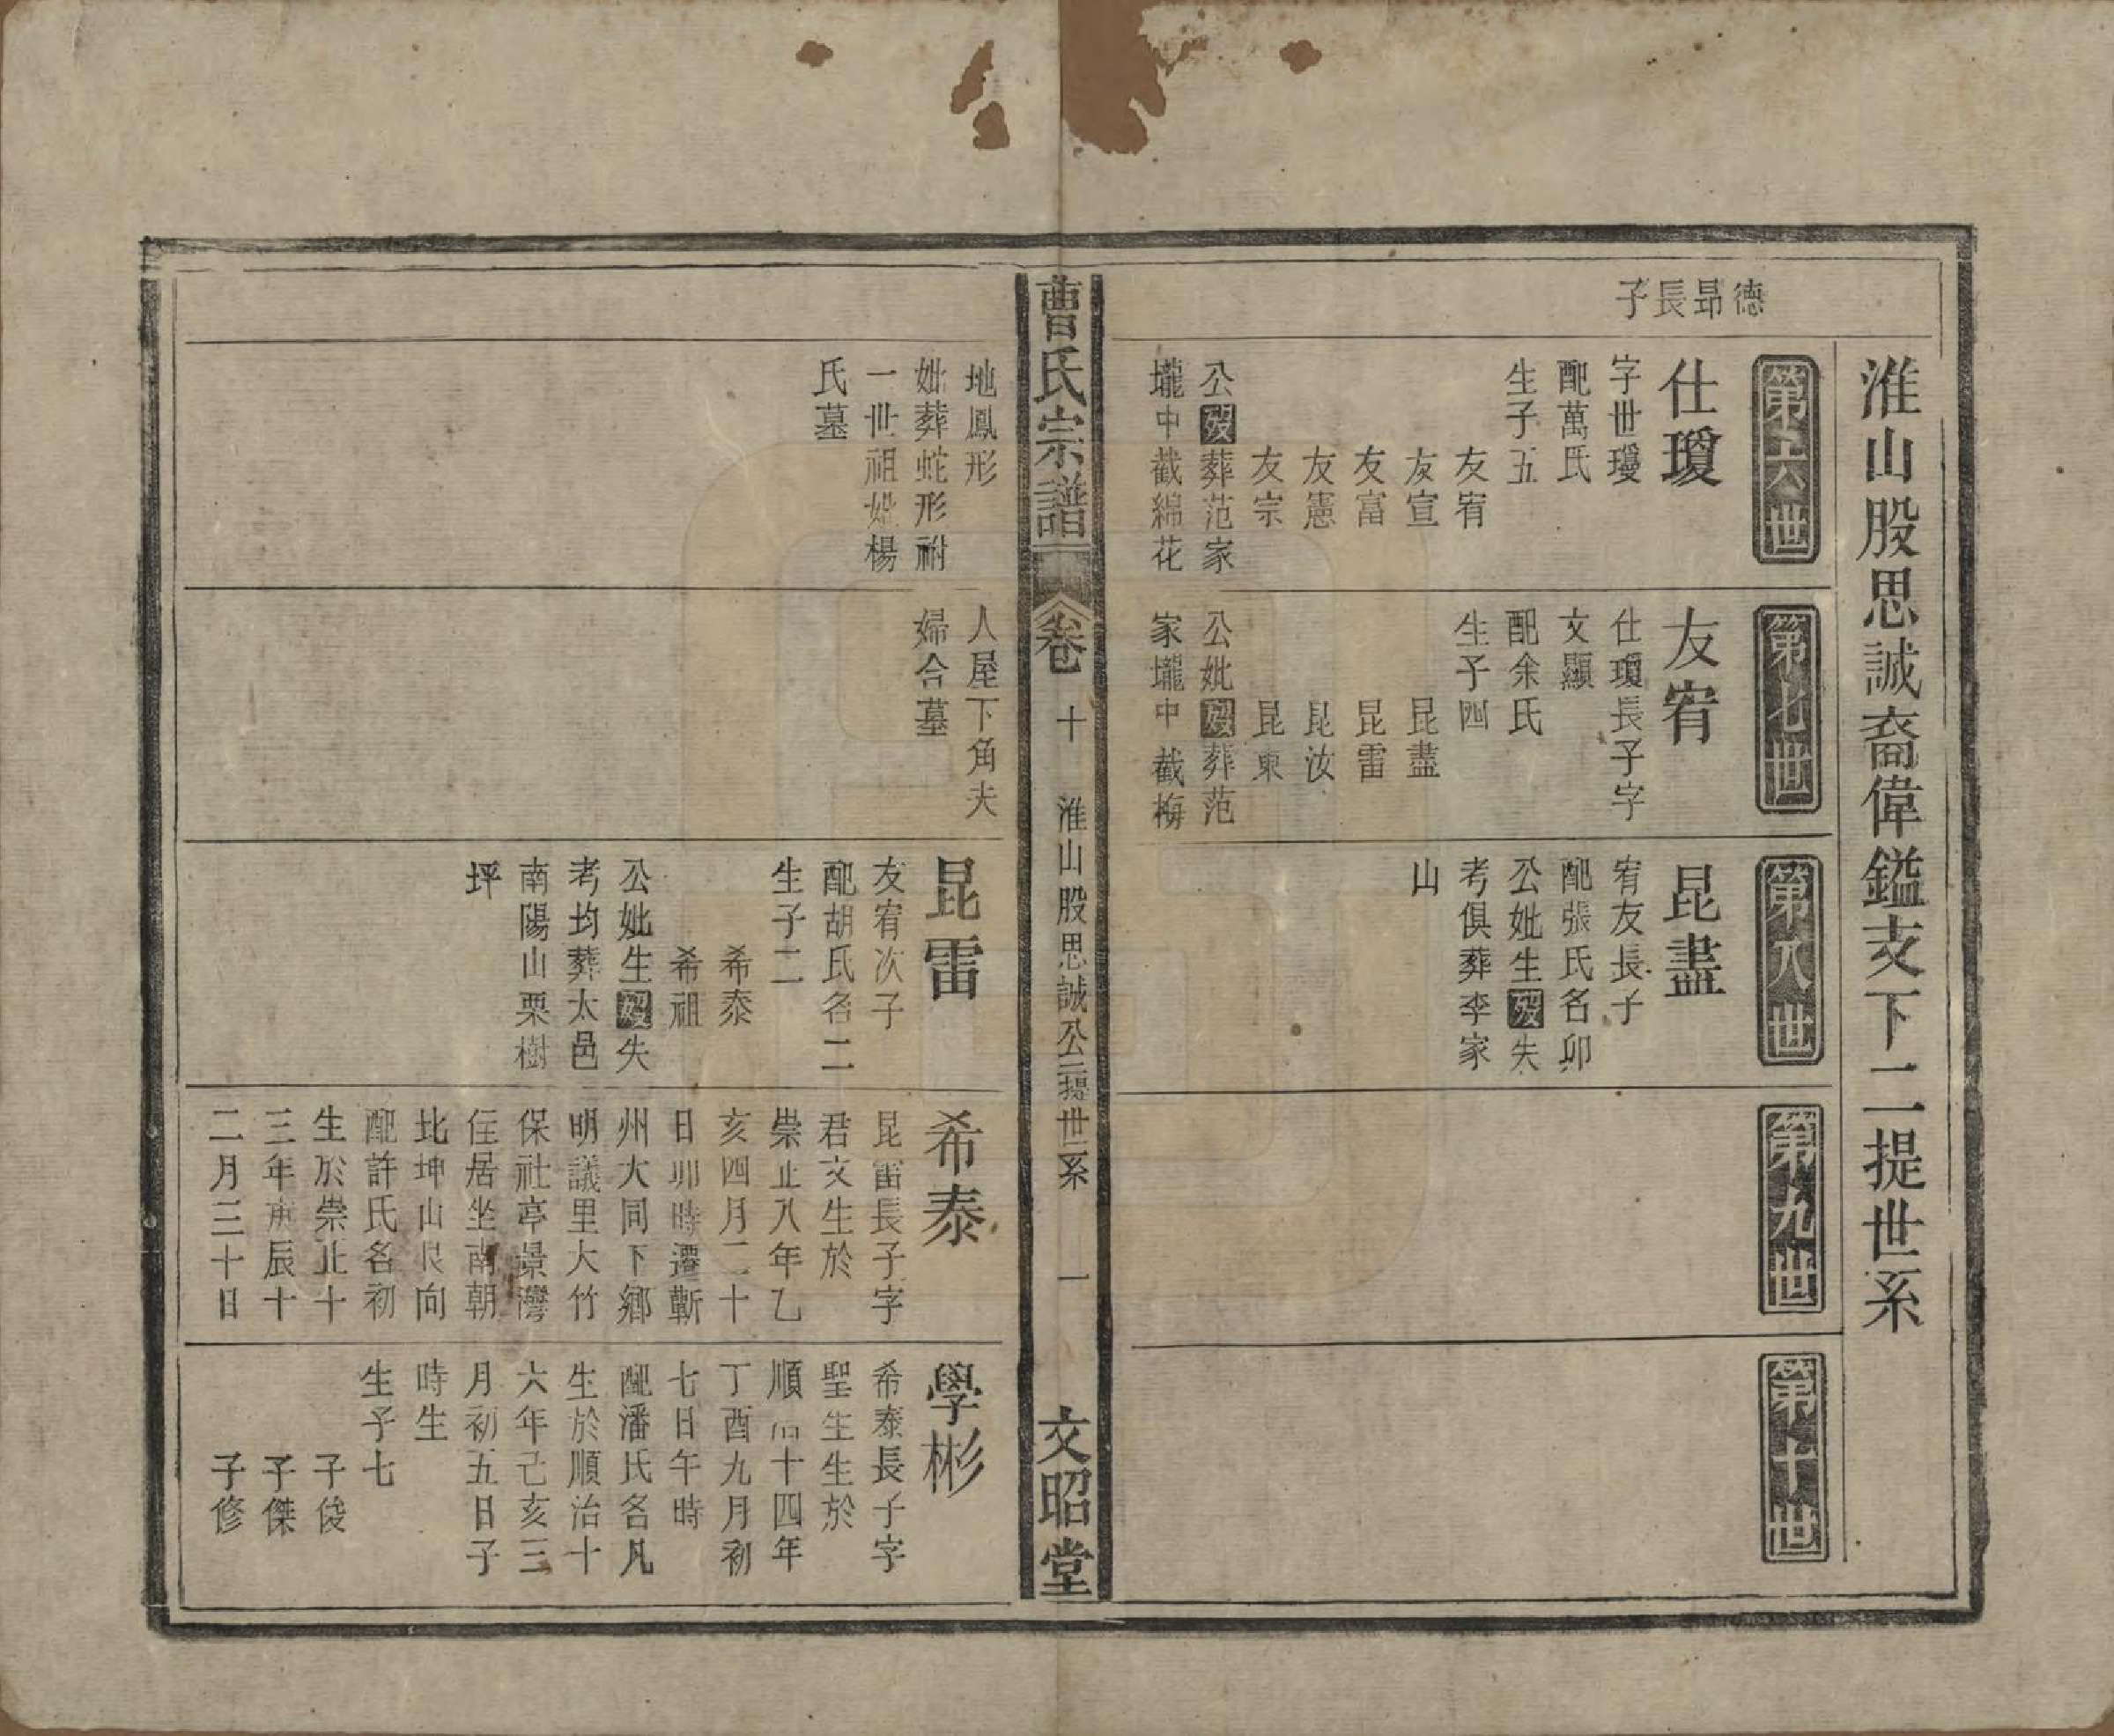 淮山股思誠裔偉鎰支下二提世系
德昻長子
第六世
仕瓊
字世瓊
配萬氏
生子五
友宥
友宣
友富
友憲
友宗
公歿葬范家
壠中截綿花
地鳳形
妣葬蛇形祔
一世祖妣楊
氏墓
第七世
友宥
仕瓊長子字
文顯
配余氏
生子四
昆盡
昆雷
昆汝
昆東
公妣歿葬范
家壠中截梅
人屋下角夫
婦合墓
第八世
昆盡
宥友長子
配張氏名卯
公妣生歿失
考俱葬李家
山
昆雷
友宥次子
配胡氏名二
生子二
希泰
希祖
公妣生歿失
考均葬太邑
南陽山栗樹
坪
第九世
希泰
昆雷長子字
君文生於
崇止八年乙
亥四月二十
日卯時遷蘄
州大同下鄉
明議里大竹
保社亭景灣
住居坐南朝
北坤山艮向
配許氏名初
生於崇止十
三年庚辰十
二月三十日
第十世
學彬
希泰長子字
聖生生於
順治十四年
丁酉九月初
七日午時
配潘氏名凡
生於順治十
六年己亥三
月初五日子
時生
生子七
子俊
子傑
子修
曹氏宗譜
卷
十
淮山股思誠公二提世系
一
文昭堂